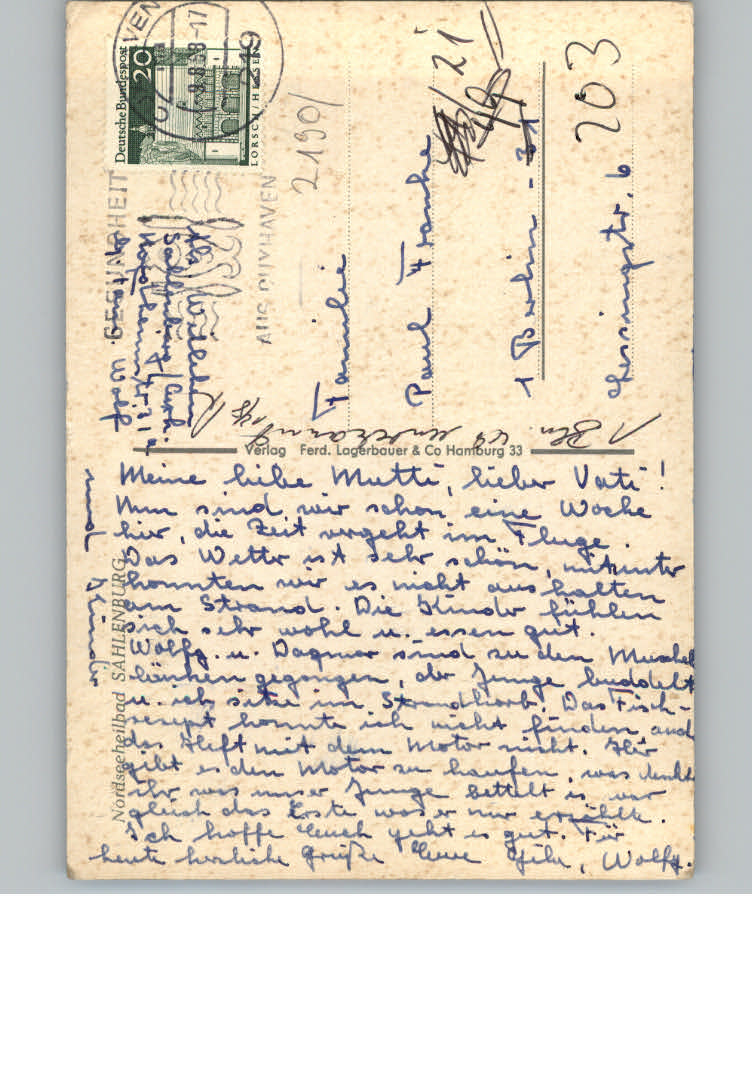 Meine liebe Mutti, lieber Vati!
Nun sind wir schon eine Woche
hier, die Zeit vergeht im Fluge.
Das Wetter ist sehr schön, mitunter
konnten wir es nicht aushalten
am Strand. Die Kinder fühlen
sich sehr wohl u. essen gut.
Wolfg. u. Dagmar sind zu den Muschel
bänken gegangen, der Junge buddelt
u. ich sitze im Strandkorb. Das Fisch-
rezept konnte ich nicht finden, auch
das Heft mit dem Motor nicht. Hier
gibt es den Motor zu kaufen, was denkt
ihr was unser Junge bettelt es war
gleich das Erste was er nur erzählte.
Ich hoffe Euch geht es gut. Für
heute herzliche Grüße Eure Gila, Wolfg.
und Kinder
Nordseeheilbad SAHLENBURG
Verlag Ferd. Lagerbauer & Co Hamburg 33
Familie
Paul Franke
1 Berlin - 21
Lessingstr. 6
Deutsche Bundespost
20
LORSCH/HESSEN
GESUNDHEIT
AUS CUXHAVEN
2190/
/21
203
219
-17
Sahlenburg/Cuxh.
1 Bln.